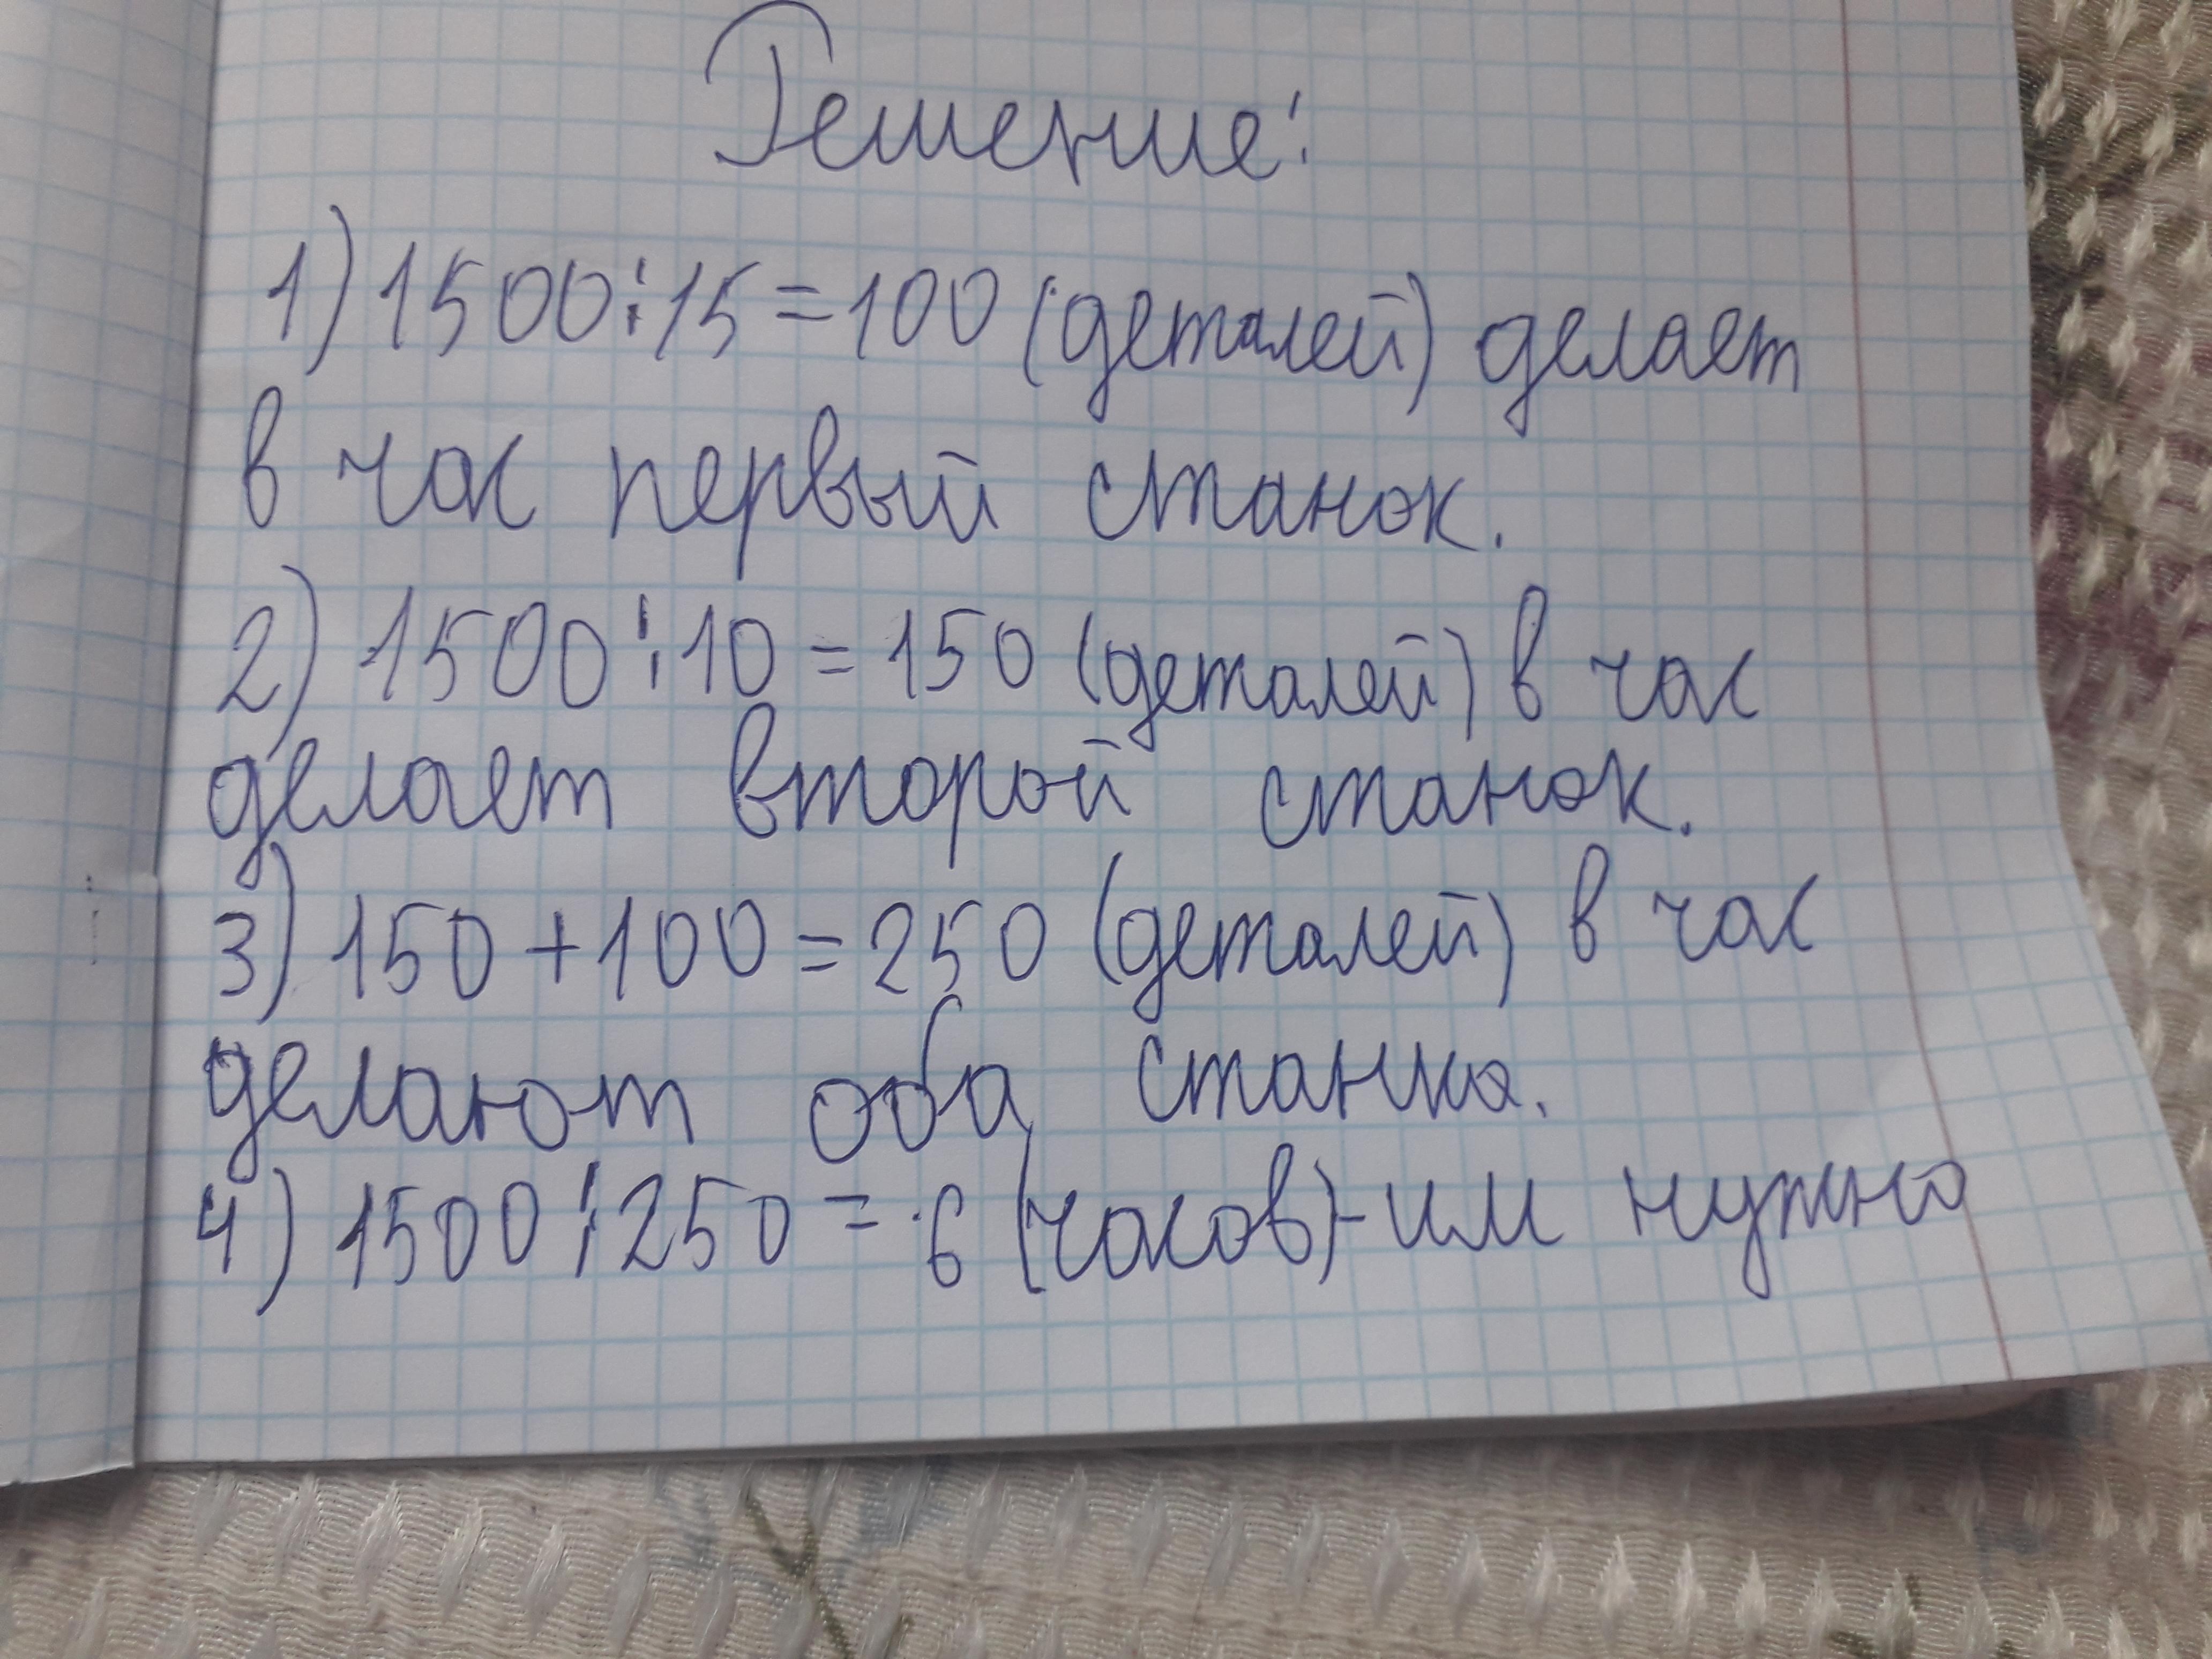 Решение:
1) 1500:15=100 (деталей) делает
в час первый станок.
2) 1500:10=150 (деталей) в час
делает второй станок.
3) 150+100=250 (деталей) в час
делают оба станка.
4) 1500:250=6 (часов)-им нужно